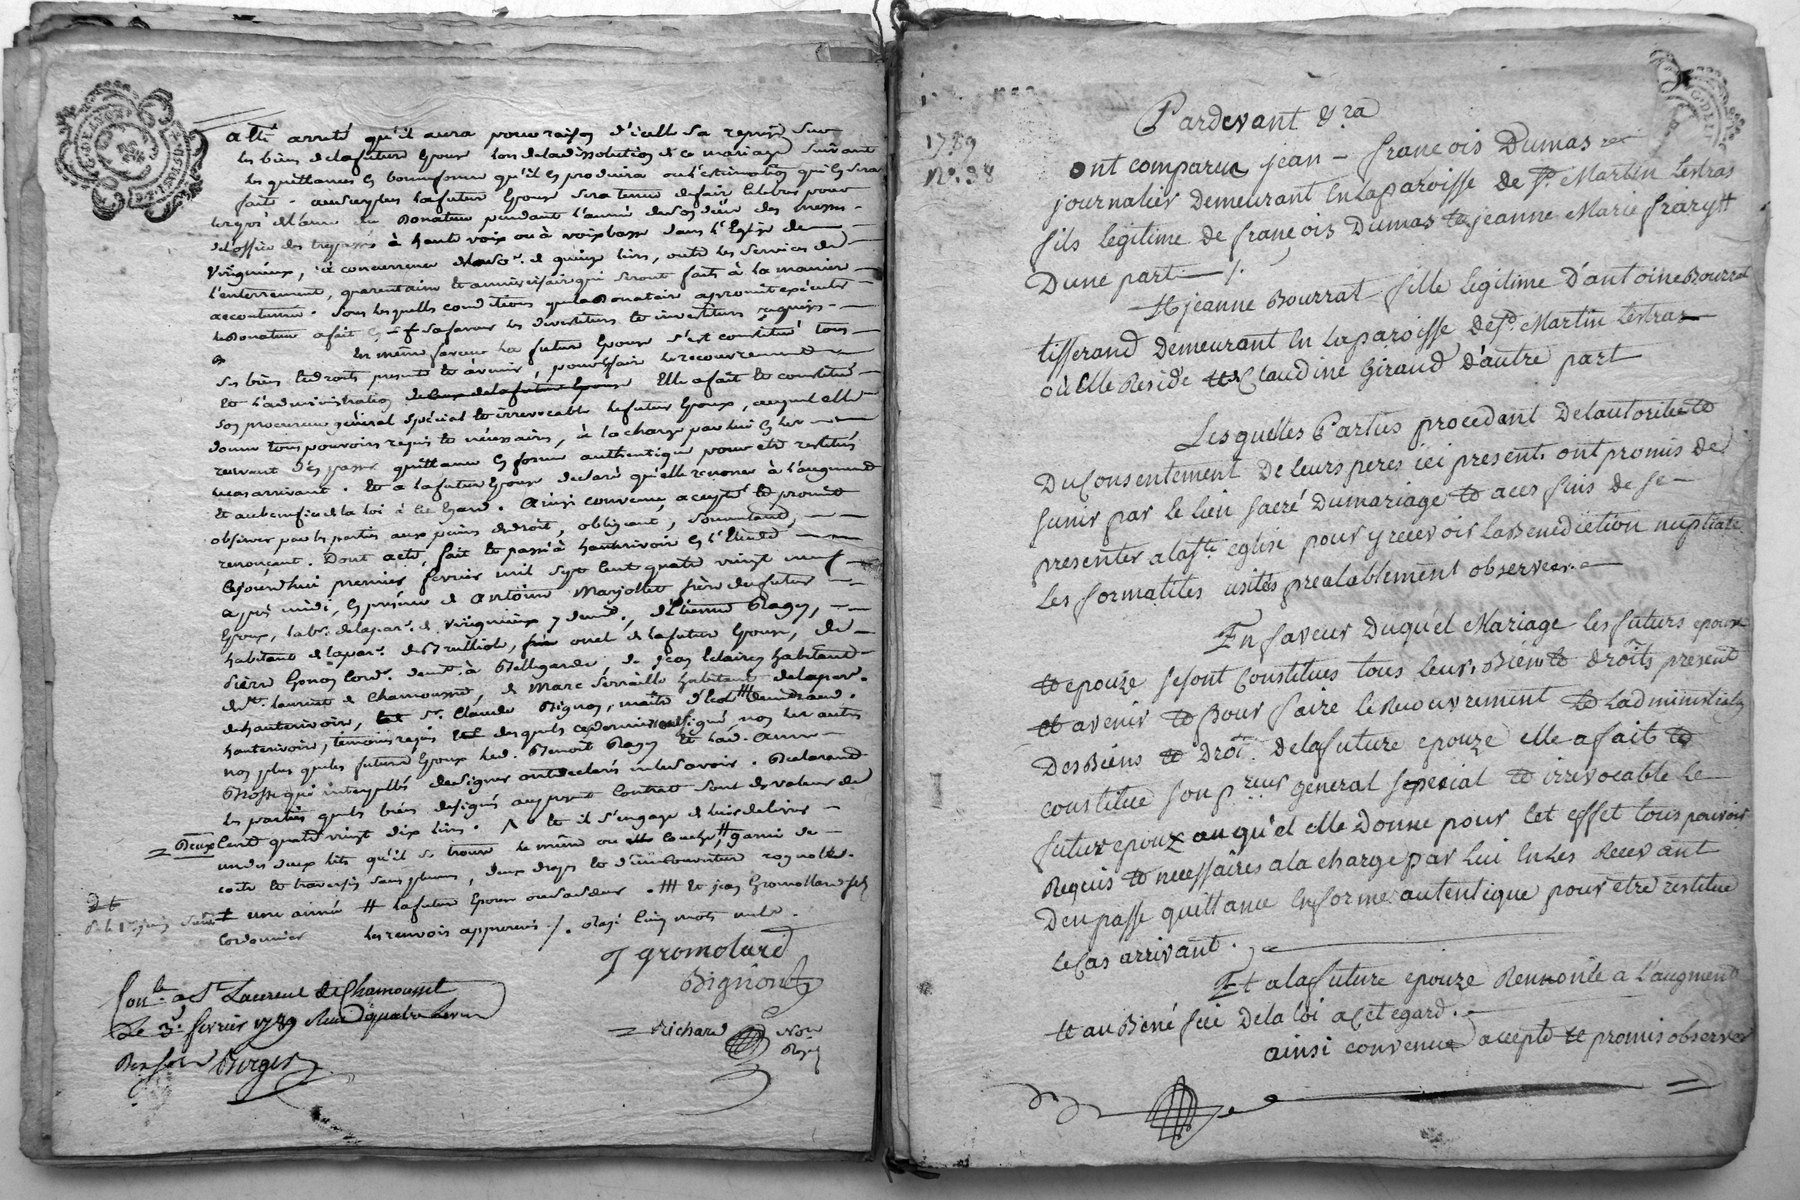 a été arreté qu'il aura pour raison d'icelle sa reprise sur
les biens de la future Epouse lors de la dissolution de ce mariage suivant
les quittances en bonne forme qu'il en produira ou l'estimation qui en sera
faite
pendant l'année de son décès des messes
de l'office des trepassés à haute voix ou à voix basse dans l'Eglise de
Virignieux, à concurrence de quinze livres, outre les services de
l'enterrement, quarantaine et anniversaire qui seront faits à la maniere
accoutumée. Sous lesquelles conditions que le Donataire a promit executer
le Donateur a fait en sa faveur les devestitures et investitures requises
En même faveur la future Epouse s'est constitué tous
ses biens et droits presents et à venir, pour faire le recouvrement
et l'administration Elle a fait et constitué
son procureur général spécial et irrevocable le futur Epoux, auquel elle
donne tous pouvoirs requis et nécessaires, à la charge par lui en les
recevant d'en passer quittance en forme authentique pour etre restitués
le cas arrivant. Et a la future Epouse declaré qu'elle renonce à l'augment
et au benefice de la loi à cet égard. Ainsi convenu, accepté et promit
observer par les parties aux peines de droit, obligeant, soumettant,
renonçant. Dont acte, fait et passé à hauterivoir en l'Etude
Cejourd'hui premier fevrier mil sept cent quatre vingt neuf
après midi, en présence de Antoine Marjollet frère du futur
Epoux, lab.r de la par. de Virignieux y demt., d'Etienne Ragey,
habitant de la par. de Brulliol, oncl de la future Epouse, de
Pierre Gonon Cord. demt. à Bellegarde, de jean habitant
de St. Laurent de Chamousset, de Marc habitant de la par.
de hauterivoir, et Sr. Claude Bignon, maitre d'Ecole demeurant
hauterivoir, temoins requis desquels ce dernier a signé, non les autres
non plus que les futurs Epoux led. Benoit Ragey et lad. Anne
qui interpellés de signer ont declaré ne le savoir. Declarant
les parties que les biens designés au present Contrat sont de valeur de
Deux Cent quatre vingt dix livres. et il s'engage de lui delivrer
un des deux lits qu'il se trouve le même ou couche garni de
coete et traversin sans plumes, deux draps et d'une couverture
une aimée la future Epouse ou sa soeur. et jean Gromollard fils
Cordonnier les renvois approuvés /. Rayé cinq mots nuls.
J gromolard
Bignon
Richard Nore
Royal
Conlé a St Laurent de Chamousset
Le 3e fevrier 1789 Reçu quatre Livres
Berger
1789
N°. 38
Pardevant &ra
ont comparu jean – françois Dumas
journalier Demeurant En La paroisse de St. Martin Lestras
fils legitime de françois Dumas et jeanne Marie frary
Dune part /.
Et jeanne Bourrat fille legitime D'antoine Bourrat
tisserand Demeurant En La paroisse de St. Martin Lestras
où Elle Reside et Claudine Giraud d'autre part
Lesquelles Parties procedant De l'autorité et
Du Consentement De leurs peres ici present, ont promis de
s'unir par le lien sacré Du mariage et a ces fins de se
presenter a la ste. eglise pour y recevoir la Benediction nuptiale
Les formalités usités prealablement observees.
En faveur Duquel Mariage les futurs epoux
et epouze se sont Constitués tous leurs Biens et droits present
et avenir et Pour faire le Recouvrement et Ladministration
Des Biens et Droi. De la future epouze elle a fait et
constitué son preur general special et irrevocable le
futur epoux auquel elle Donne pour Cet effet tous pouvoir
Requis et necessaires a la charge par Lui En Les Recevant
D'en passé quittance En forme autentique pour etre restitué
le Cas arrivant.
Et a la future epouze Renoncé a L'augment
et au Benefice De la loi a Cet egard.
ainsi convenu accepté et promis observer